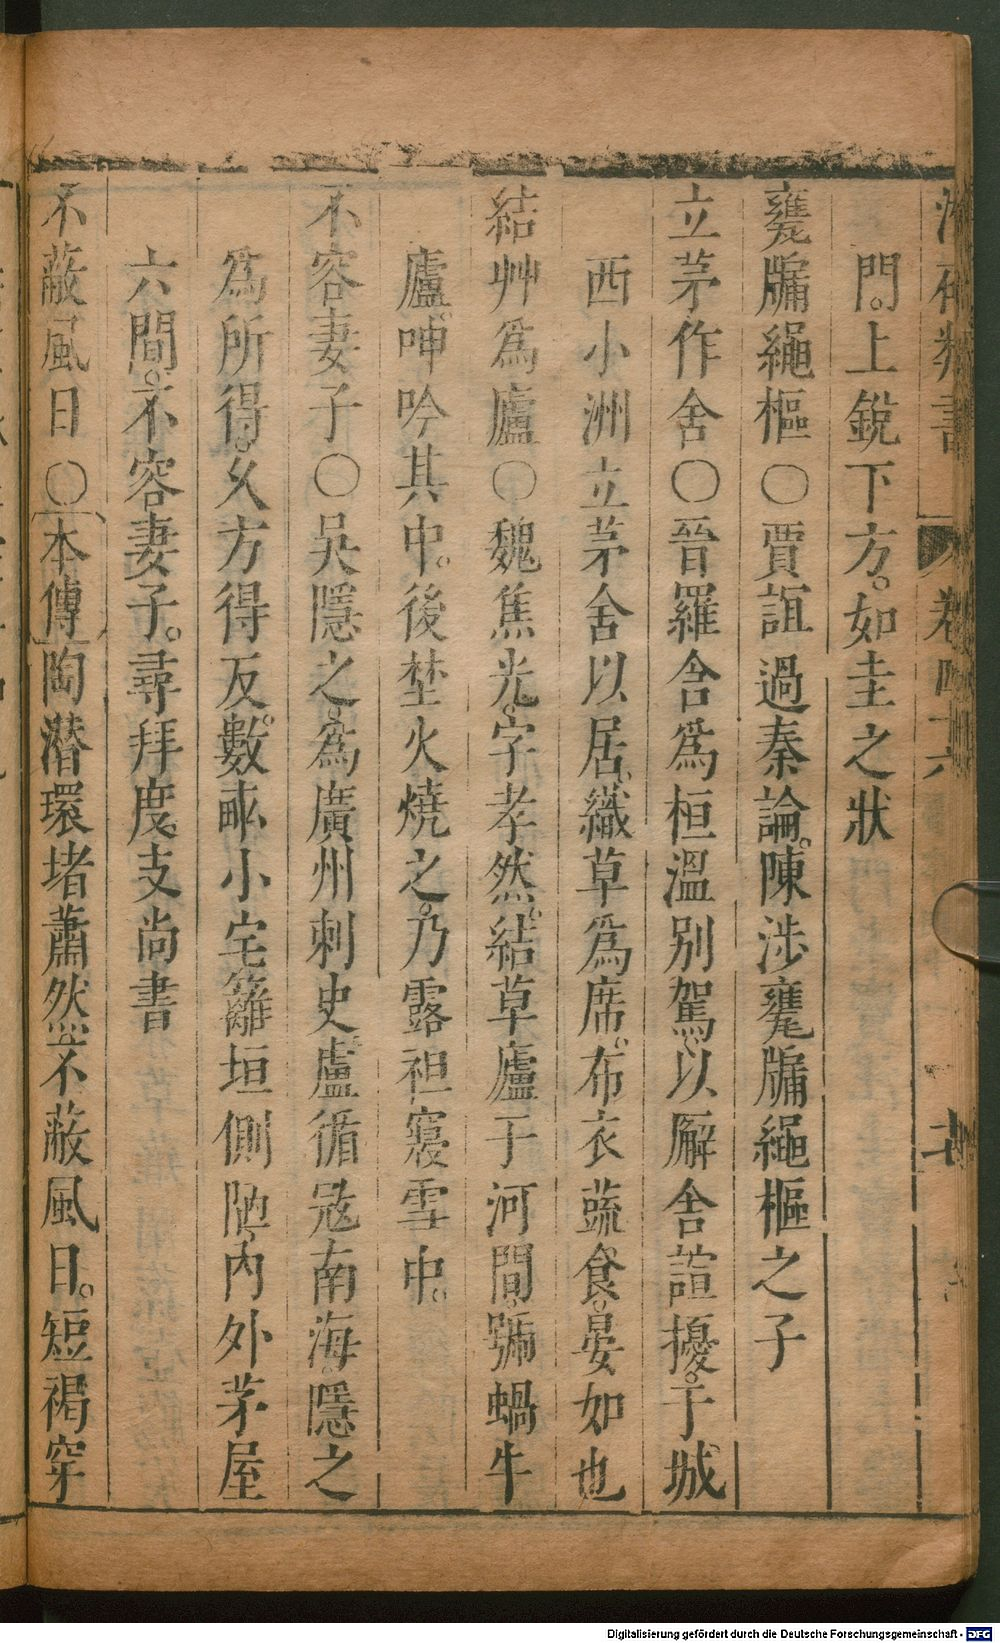 卷四十六
門。上銳下方。如圭之狀
甕牖繩樞〇賈誼過秦論。陳涉甕牖繩樞之子
立茅作舍〇晉羅含爲桓溫別駕。以廨舍諠擾。于城
西小洲立茅舍以居。織草爲席。布衣蔬食。晏如也
結艸爲廬〇魏焦光。字孝然。結草廬于河間。號蝸牛
廬。呻吟其中。後埜火燒之。乃露袒寢雪中。
不容妻子〇吳隱之。爲廣州刺史。盧循冦南海。隱之
爲所得。乆方得反。數畝小宅。籬垣側陋。内外茅屋
六間。不容妻子。尋拜度支尚書
不蔽風日〇本傳陶潜環堵蕭然。不蔽風日。短褐穿
Digitalisierung gefördert durch die Deutsche Forschungsgemeinschaft - DFG